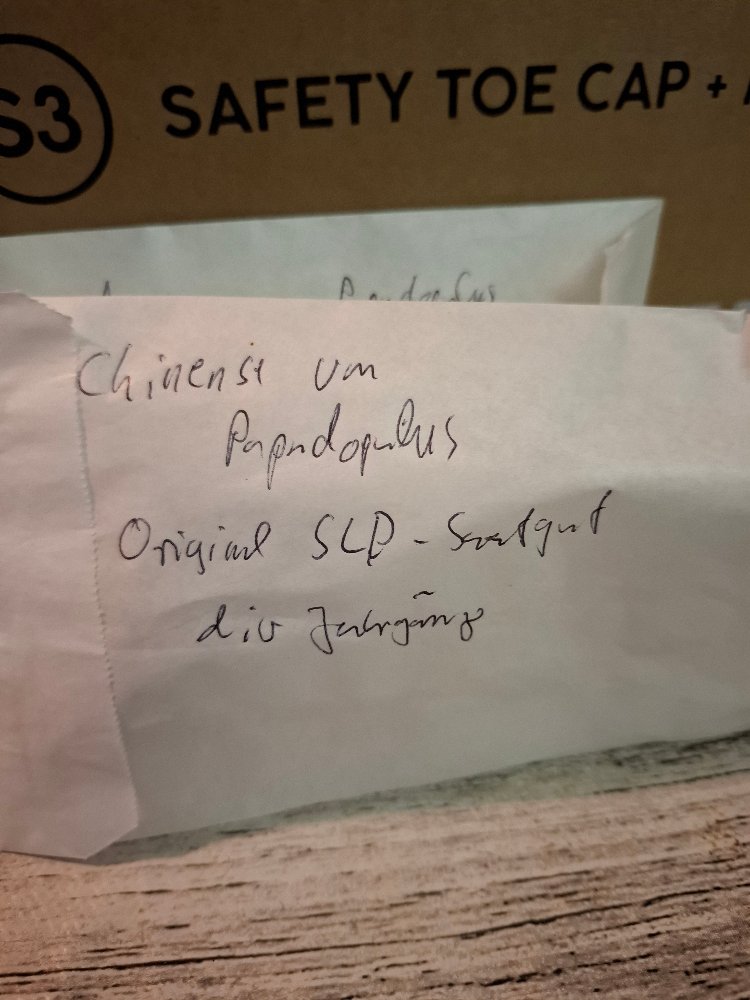 S3 SAFETY TOE CAP +
Chinense von
Papadopulus
Original SLP - Saatgut
div Jahrgänge